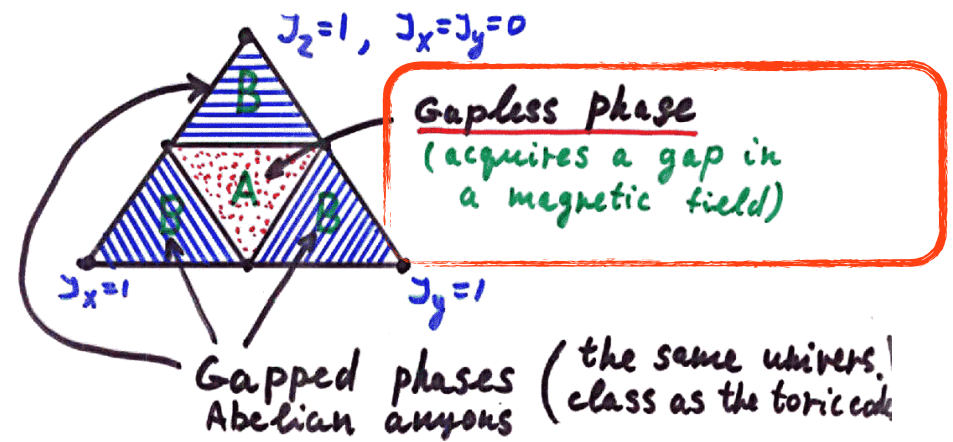 J_z=1, J_x=J_y=0
B
Gapless phase
(acquires a gap in
a magnetic field)
A
B
B
J_x=1
J_y=1
Gapped phases
Abelian anyons
(the same univers.
class as the toric code